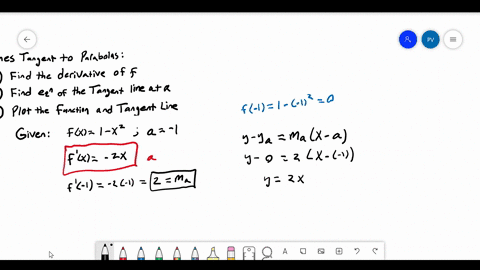 nes Tangent to Parabolas:
) Find the derivative of f
) Find eqⁿ of the Tangent line at a
) Plot the Function and Tangent Line
Given: f(x) = 1-x² ; a = -1
f'(x) = -2x a
f'(-1) = -2(-1) = 2 = mₐ
f(-1) = 1-(-1)² = 0
y-yₐ = mₐ(x-a)
y-0 = 2(x-(-1))
y = 2x
PV